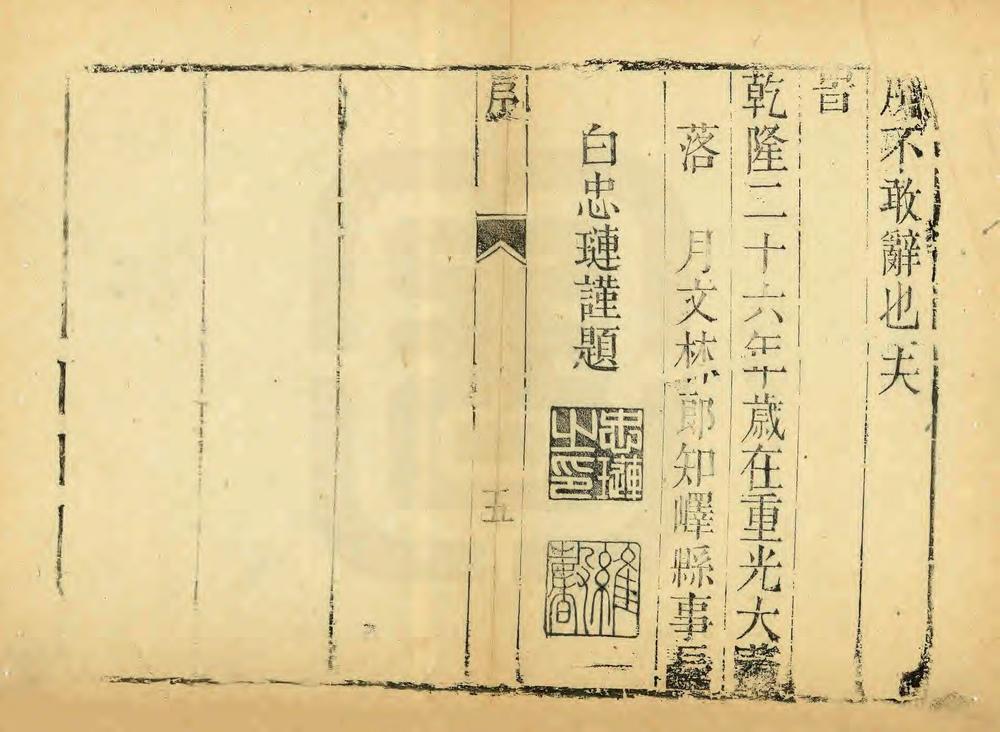 所不敢辭也夫
旹
乾隆二十六年歲在重光大荒
落　月文林郎知嶧縣事長
白忠璉謹題
忠璉之印
序
五